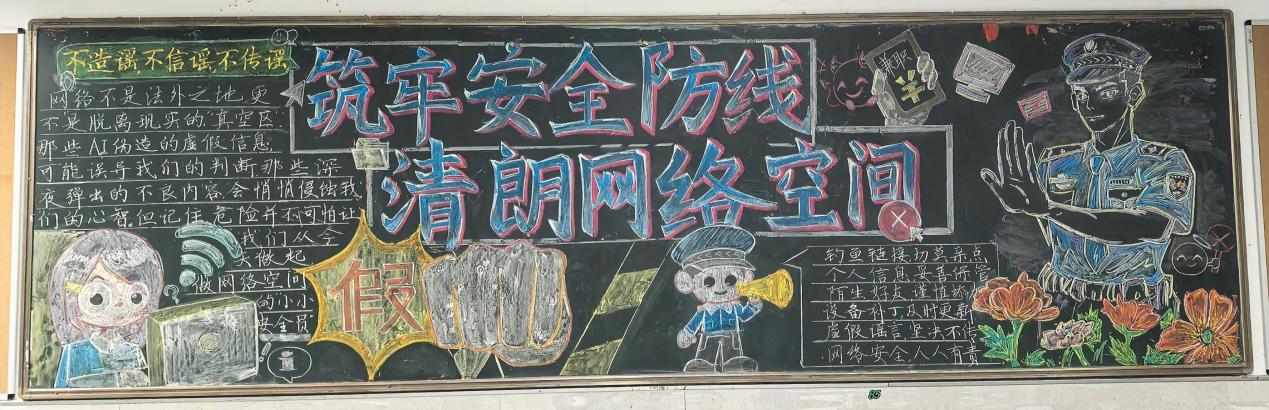 不造谣,不信谣,不传谣
网络不是法外之地,更
不是脱离现实的"真空区"
那些AI伪造的虚假信息,
可能误导我们的判断那些深
夜弹出的不良内容会悄悄侵蚀我
们的心智.但记住危险并不可怕让
我们从今
天做起
做网络空间
的小小
安全员
筑牢安全防线
清朗网络空间
假
兼职
¥
钓鱼链接切莫乱点
个人信息妥善保管
陌生好友谨慎添
设备补丁及时更新
虚假谣言坚决不传
网络安全,人人有责
85